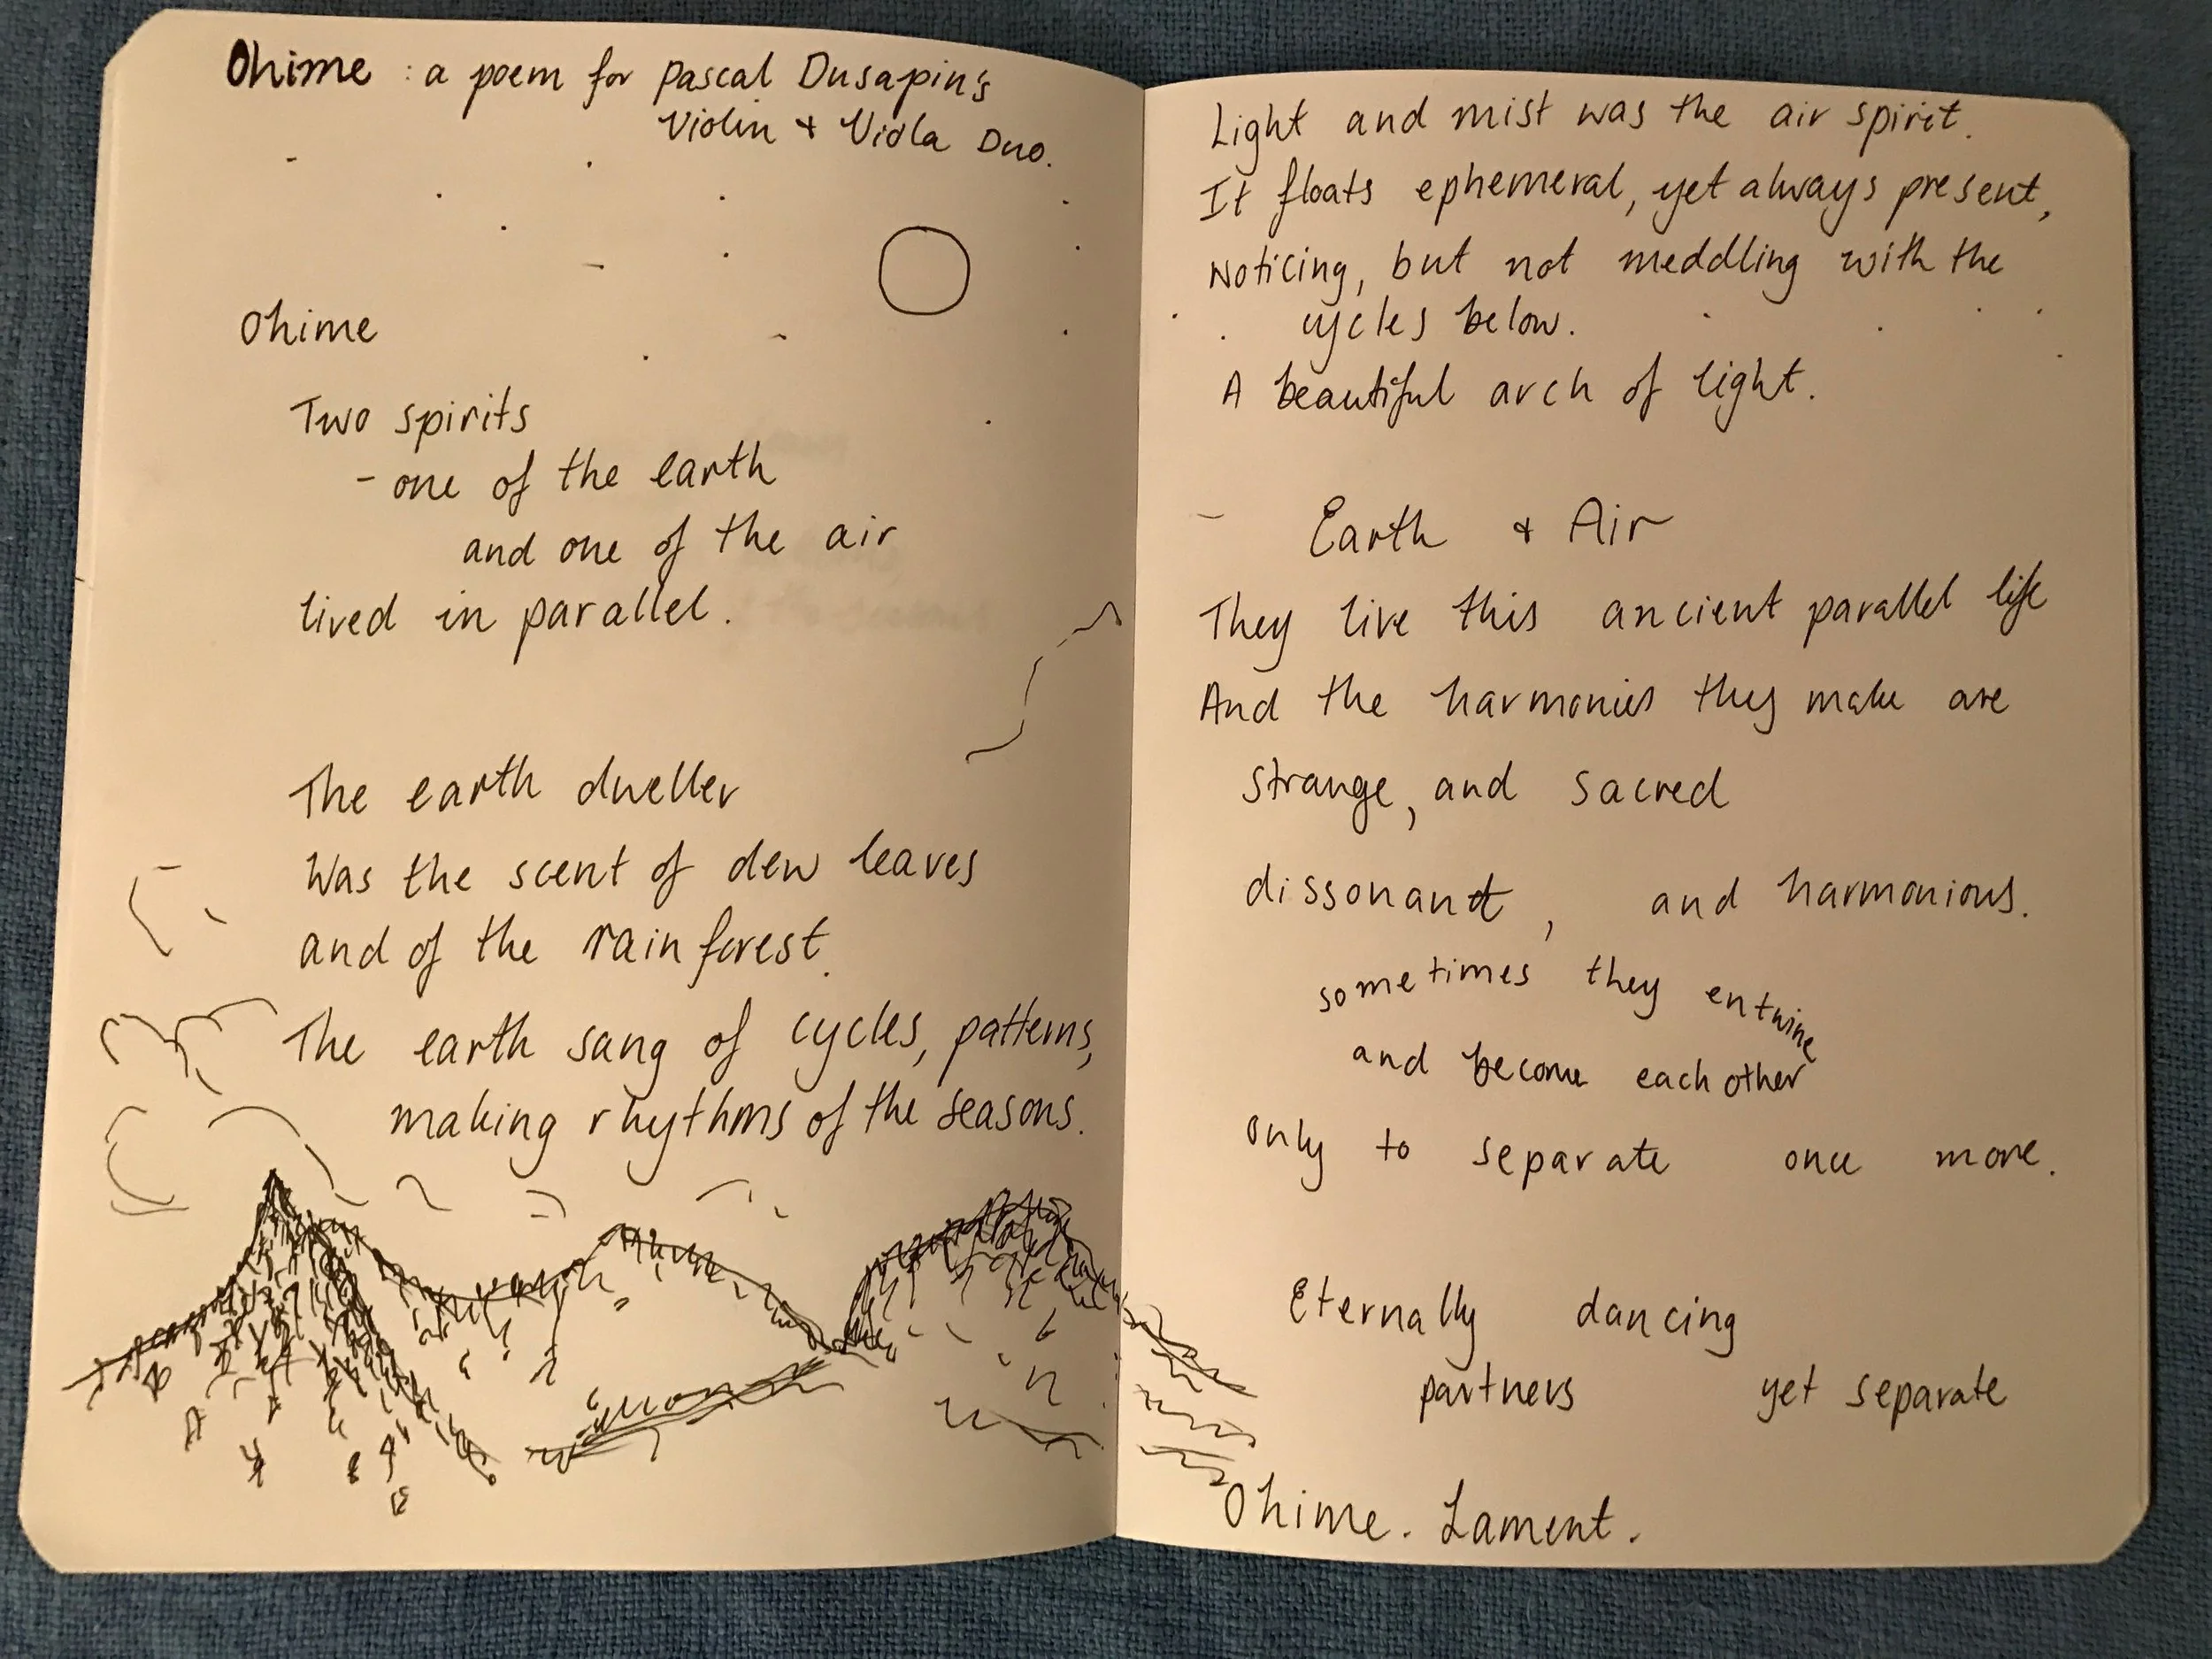 Ohime : a poem for Pascal Dusapin's
Violin + Viola Duo.
Ohime
Two spirits
- one of the earth
and one of the air
lived in parallel.
The earth dweller
Was the scent of dew leaves
and of the rainforest.
The earth sang of cycles, patterns,
making rhythms of the seasons.
Light and mist was the air spirit.
It floats ephemeral, yet always present,
Noticing, but not meddling with the
cycles below.
A beautiful arch of light.
Earth + Air
They live this ancient parallel life
And the harmonies they make are
strange, and sacred
dissonant, and harmonious.
sometimes they entwine
and become each other
only to separate once more.
Eternally dancing
partners yet separate
Ohime. Lament.